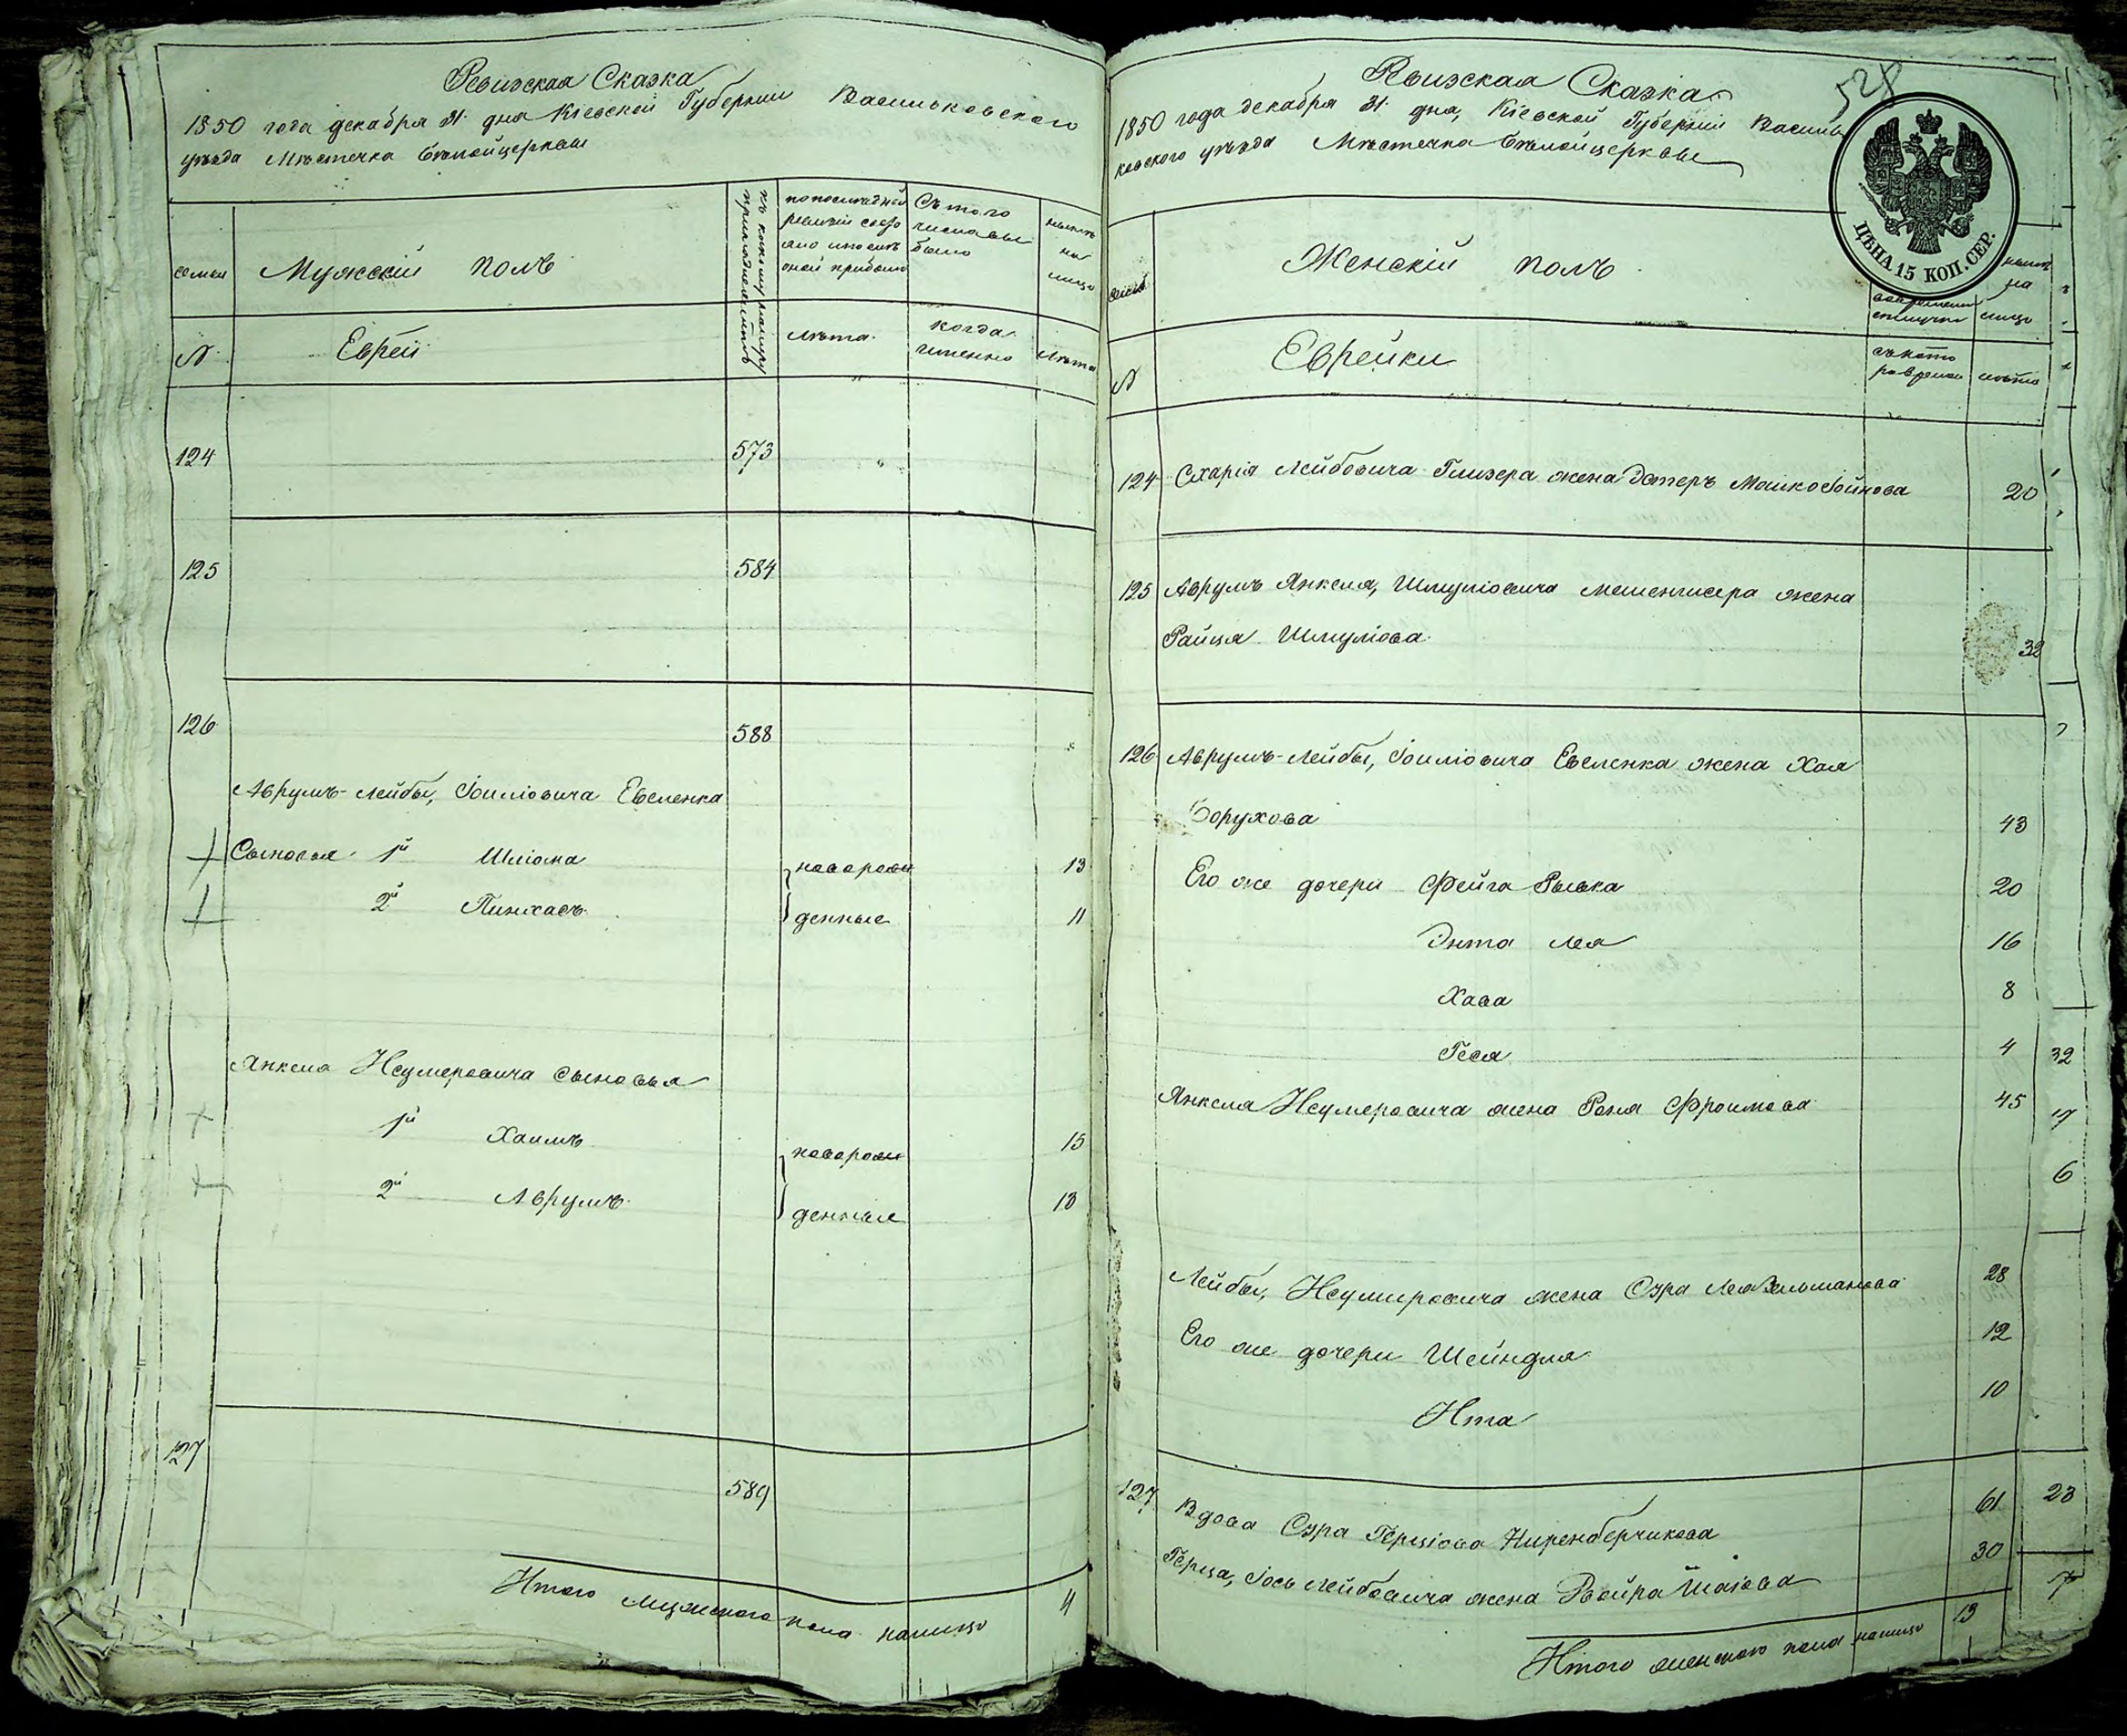 Ревизская Сказка
1850 года декабря 31. дня Кіевской Губерніи Васильковского
уѣзда Мѣстечка Бѣлойцеркви
семьи
Мужескій полъ
къ какому номеру принадлежитъ
по последней
ревизіи состо
яло или послѣ
оной прибыло
Съ того
числа вы
было
нынѣ
на
лицо
№
Евреи
лѣта
когда
именно
лѣта
124
573
125
584
126
588
Аврумъ-Лейбы, Іоиліовича Евеленка
Сыновья 1й Шліома
новорож
13
2й Пинхасъ
денные
11
Янкеля Неумеровича сыновья
1й Хаимъ
новорож
15
2й Аврумъ
денные
13
127
589
Итого мужеского пола налицо 4
Ревизская Сказка
528
1850 года декабря 31. дня, Кіевской Губерніи Василь
ковского уѣзда Мѣстечка Бѣлойцеркви
ЦѢНА 15 КОП. СЕР.
семьи
Женскій полъ
во временной
отлучке
нынѣ
на
лицо
№
Еврейки
съ кото
ра времени
лѣта
124 Схарія Лейбовича Глизера жена Эстеръ Машко Іойнова 20
125 Аврумъ Янкеля, Шмуліовича жена
Райця Шмуліова 32
126 Аврумъ-Лейбы, Іоиліовича Евеленка жена Хая
Борухова 43
Его же дочери Фейга Рывка 20
Энта Лея 16
Хава 8
Геся 4
32
Янкеля Неумеровича жена Роня Фроимова 45
17
6
Лейбы, Неумировича жена Сура Лея Зельманова 28
Его же дочери Шейндля 12
Ита 10
127 Вдова Сура Герціова Ниренберчикова 61
23
Герца, Іось Лейбовича жена Двойра Шаіова 30
7
Итого женского пола налицо 13